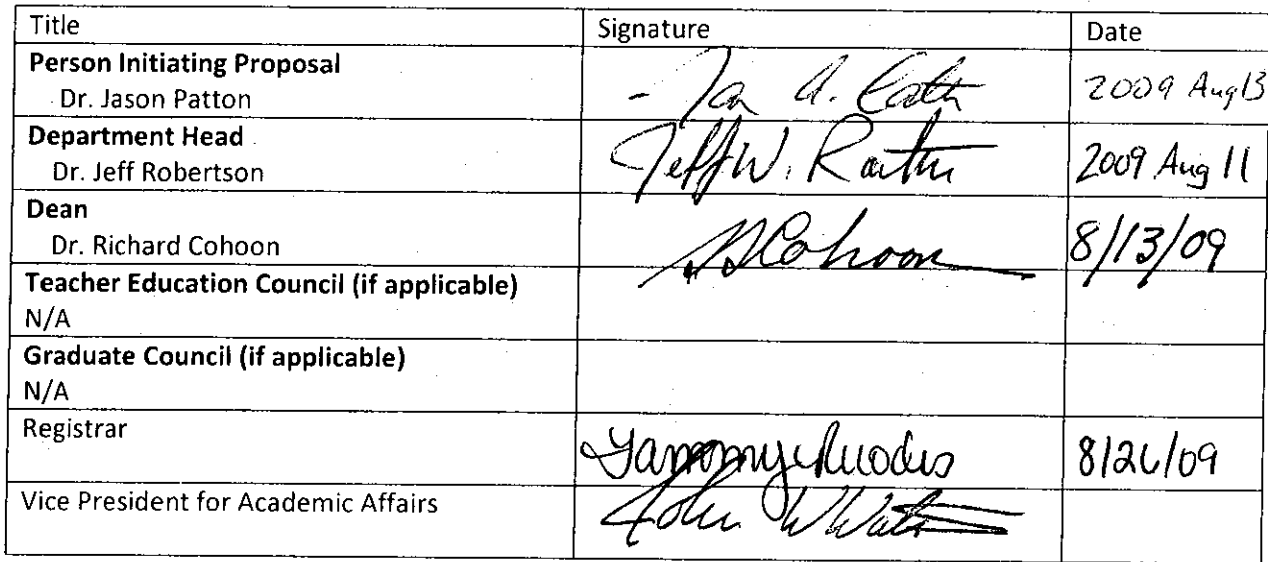 Title Signature Date
Person Initiating Proposal
Dr. Jason Patton 2009 Aug 13
Department Head
Dr. Jeff Robertson Jeff W. 2009 Aug 11
Dean
Dr. Richard Cohoon Cohoon 8/13/09
Teacher Education Council (if applicable)
N/A
Graduate Council (if applicable)
N/A
Registrar Tammy Rhodes 8/26/09
Vice President for Academic Affairs John W